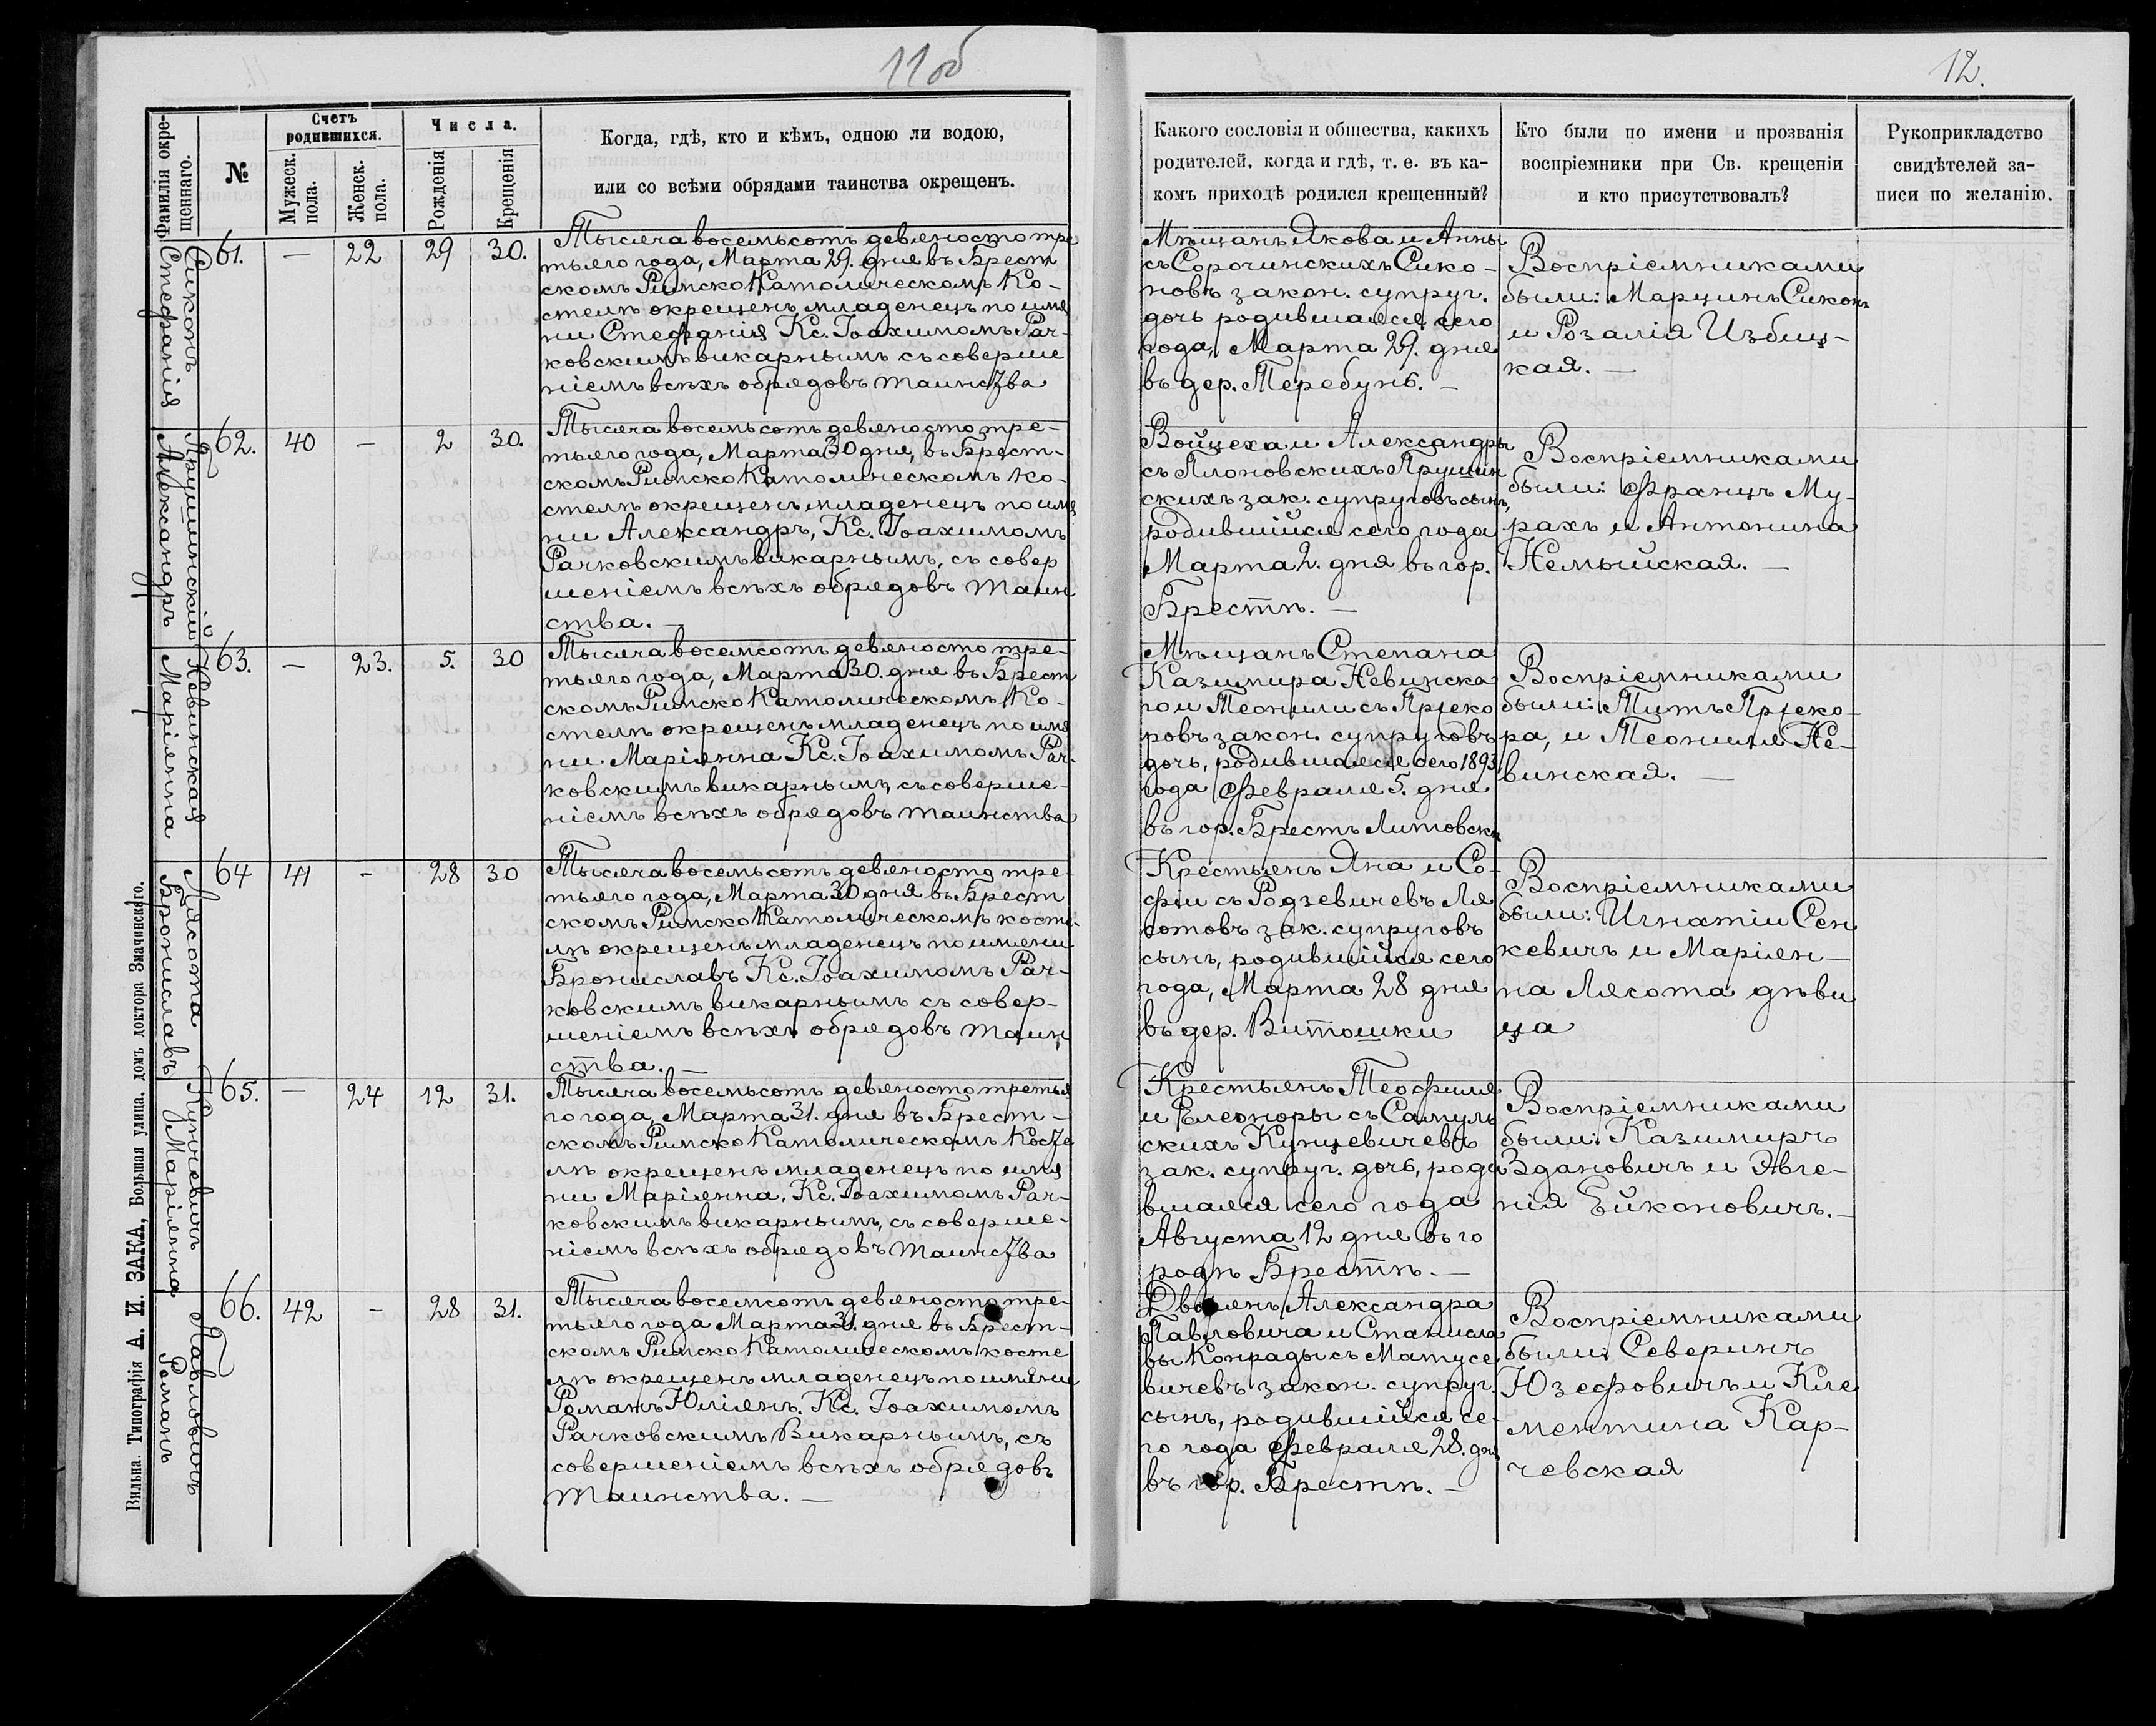 11об
12.
Фамилія окре-
щеннаго.
№
Счетъ
родившихся.
Мужеск.
пола.
Женск.
пола.
Числа.
Рожденія
Крещенія
Когда, гдѣ, кто и кѣмъ, одною ли водою,
или со всѣми обрядами таинства окрещенъ.
Какого сословія и общества, какихъ
родителей, когда и гдѣ, т. е. въ ка-
комъ приходѣ родился крещенный?
Кто были по имени и прозванія
воспріемники при Св. крещеніи
и кто присутствовалъ?
Рукоприкладство
свидѣтелей за-
писи по желанію.
Сиконъ
Стефанія
61.
—
22
29
30.
Тысяча восемьсотъ девяносто тре
тьяго года, Марта 29. дня въ Брест
скомъ Римско Католическомъ Ко-
стелѣ окрещенъ младенецъ по име
ни Стефанія Кс. Іоахимомъ Рач-
ковскимъ викарнымъ съ соверше
ніемъ всѣхъ обрядовъ таинства
Мѣщанъ Якова и Анны
съ Сорочинскихъ Сико-
новъ закон. супруг.
дочь родившаяся сего
года, Марта 29. дня
въ дер. Теребунь. —
Воспріемниками
были: Марцинъ Сиконъ
и Розалія Избиц-
кая. —
Прушинскій
Александръ
62.
40
—
2
30.
Тысяча восемьсотъ девяносто тре-
тьяго года, Марта 30 дня, въ Брест-
скомъ Римско Католическомъ Ко-
стелѣ окрещенъ младенецъ по име
ни Александръ, Кс. Іоахимомъ
Рачковскимъ викарнымъ, съ совер
шеніемъ всѣхъ обрядовъ таин
ства. —
Войцеха и Александры
съ Плоновскихъ Прушин
скихъ зак. супруговъ сынъ,
родившійся сего года
Марта 2. дня въ гор.
Брестѣ. —
Воспріемниками
были: Францъ Му-
рахъ и Антонина
Немыйская. —
Невинская
Маріянна
63.
—
23.
5.
30
Тысяча восемсотъ девяносто тре-
тьяго года, Марта 30. дня въ Брест
скомъ Римско Католическомъ Ко-
стелѣ окрещенъ младенецъ по име
ни Маріянна Кс. Іоахимомъ Рач-
ковскимъ викарнымъ, съ соверше-
ніемъ всѣхъ обрядовъ таинства
Мѣщанъ Степана
Казимира Невинска
го и Теонили съ Прјеко
ровъ закон. супруговъ
дочь, родившаяся сего 1893
года Февраля 5. дня
въ гор. Брестъ Литовскѣ
Воспріемниками
были: Титъ Прјеко-
ра, и Теониля Не-
винская. —
Лясота
Брониславъ
64
41
-
28
30
Тысяча восемьсотъ девяносто тре-
тьяго года, Марта 30 дня въ Брест
скомъ Римско Католическомъ косте-
лѣ окрещенъ младенецъ по имени
Брониславъ Кс. Іоахимомъ Рач-
ковскимъ викарнымъ съ совер-
шеніемъ всѣхъ обрядовъ таин
ства. —
Крестьянъ Яна и Со-
фіи съ Родзевичевъ Ля
сотовъ зак. супруговъ
сынъ, родившійся сего
года, Марта 28 дня
въ дер. Витошки
Воспріемниками
были: Игнатіи Сен
кевичъ и Маріян-
на Лясота дѣви
ца
Кунцевичъ
Маріянна
65.
—
24
12
31.
Тысяча восемьсотъ девяносто третья
го года, Марта 31. дня въ Брест-
скомъ Римско Католическомъ Косте
лѣ окрещенъ младенецъ по име
ни Маріянна, Кс. Іоахимомъ Рач-
ковскимъ викарнымъ, съ соверше-
ніемъ всѣхъ обрядовъ таинства
Крестьянъ Теофиля
и Елеоноры съ Самуль
скихъ Кунцевичевъ
зак. супруг. дочь, роди
вшаяся сего года
Августа 12 дня въ го
родѣ Брестѣ. —
Воспріемниками
были: Казимиръ
Здановичъ и Эвге-
нія Ейконовичъ. —
Павловичъ
Романъ
66.
42
-
28
31.
Тысяча восемсотъ девяносто тре-
тьяго года Марта 31. дня въ Брест-
скомъ Римско Католическомъ косте
лѣ окрещенъ младенецъ по имени
Романъ Юліянъ. Кс. Іоахимомъ
Рачковскимъ Викарнымъ, съ
совершеніемъ всѣхъ обрядовъ
таинства. —
Дворянъ Александра
Павловича и Станисла
вы Конрады съ Матусе
вичевъ закон. супруг.
сынъ, родившійся се-
го года Февраля 28. дня
въ гор. Брестѣ. —
Воспріемниками
были: Северинъ
Юзефовичъ и Кле
ментина Кар-
чевская
Вильна. Типографія А. И. ЗАКА, Большая улица, домъ доктора Значинскаго.